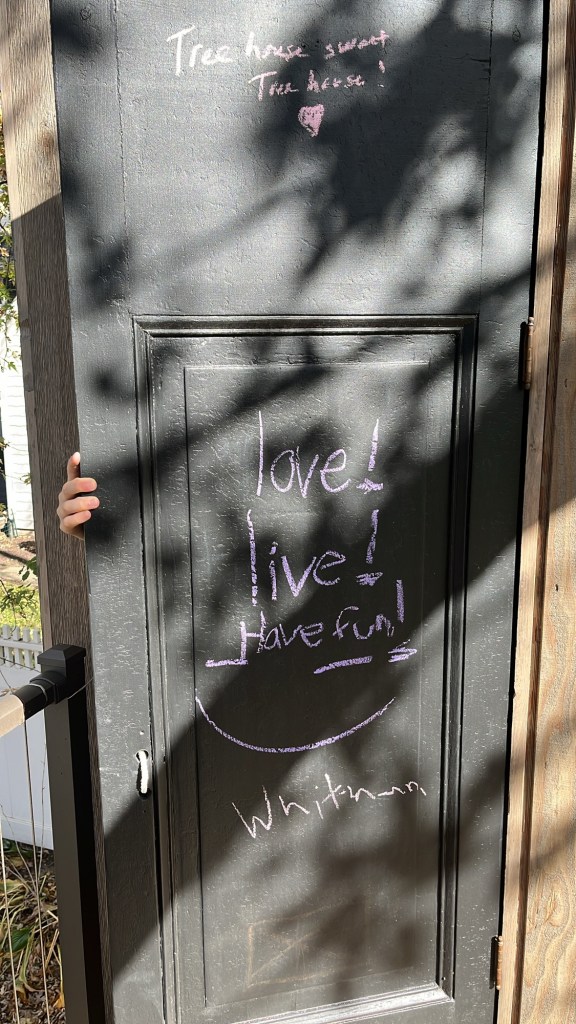 Tree house sweet
Tree house!
love!
live!
Have fun!
Whitman